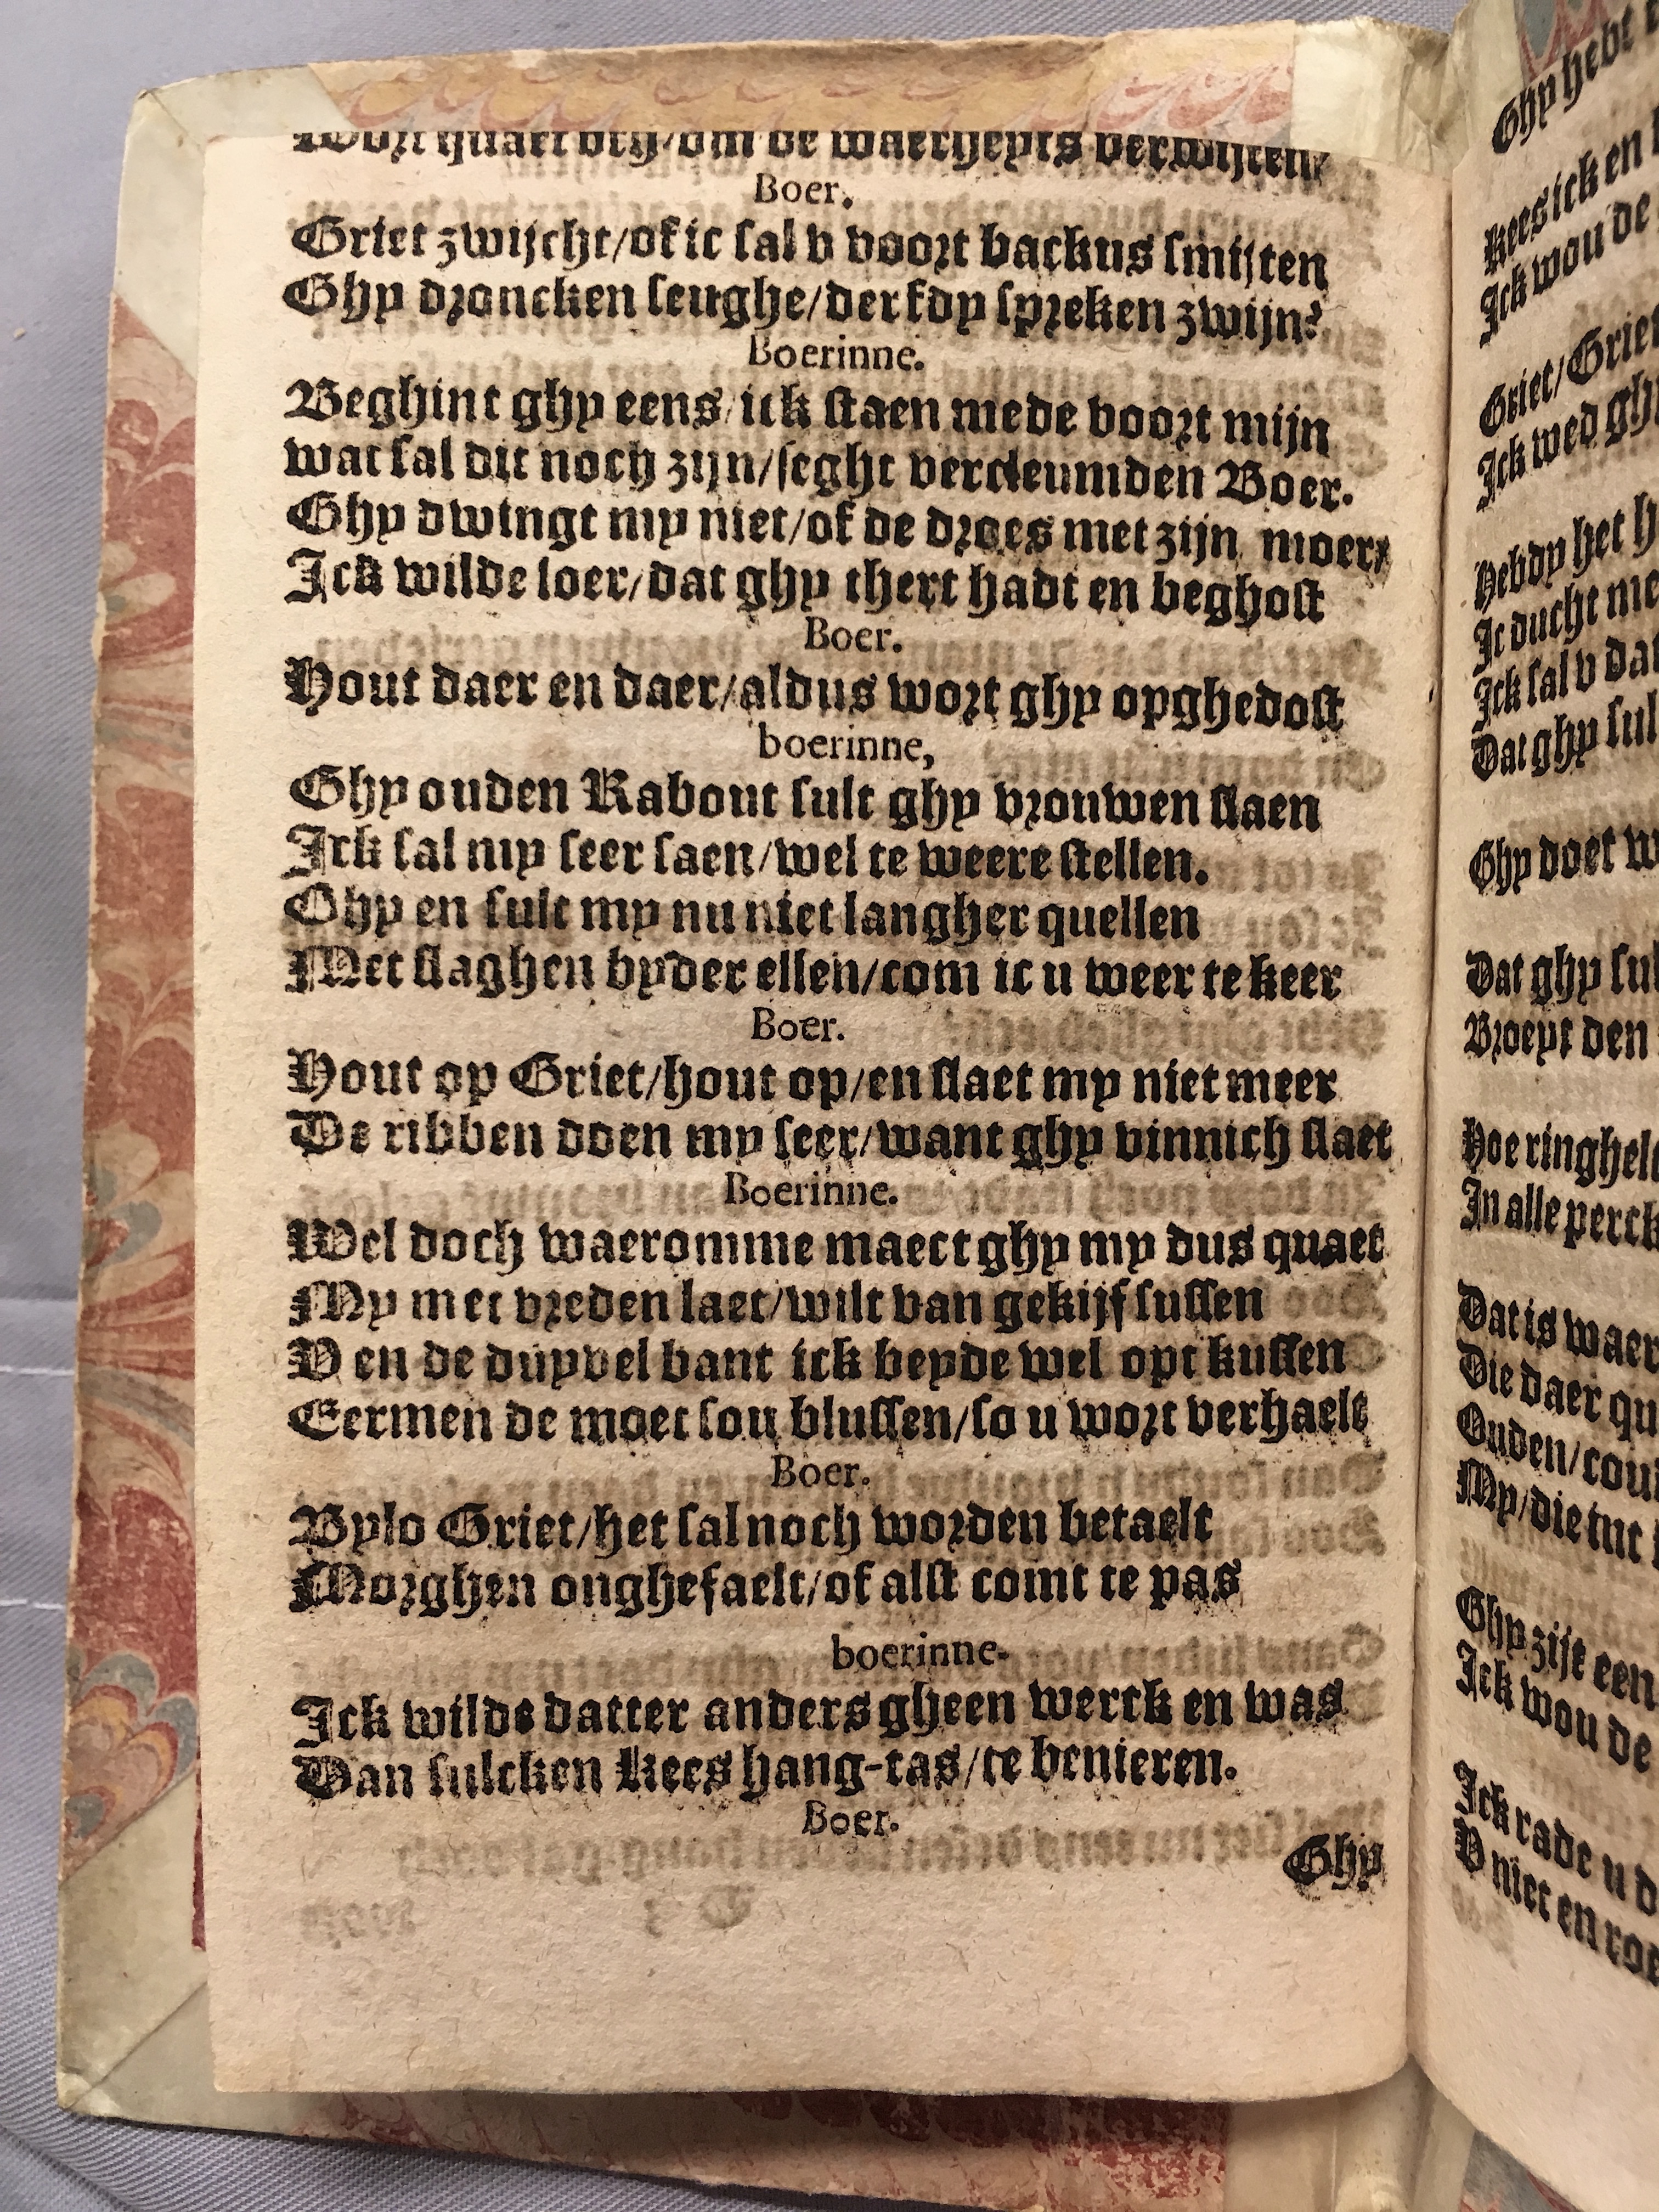 Wort quaet bry/om de waerheyts verwijten
Boer.
Griet zwijcht/of ic sal v voort backus smijten
Ghy droncken seughe/derfdy spreken zwijn?
Boerinne.
Beghint ghy eens/ick staen mede voort mijn
wat sal dit noch zijn/seght vercleumden Boer.
Ghy dwingt my niet/of de droes met zijn moer
Ick wilde loer/dat ghy thert hadt en beghost
Boer.
Hout daer en daer/aldus wort ghy opghedost
boerinne,
Ghy ouden Rabout sult ghy vrouwen slaen
Ick sal my seer saen/wel te weere stellen.
Ghy en sult my nu niet langher quellen
Met slaghen byder ellen/com ic u weer te keer
Boer.
Hout op Griet/hout op/en slaet my niet meer
De ribben doen my seer/want ghy vinnich slaet
Boerinne.
Wel doch waeromme maect ghy my dus quaet
My met vreden laet/wilt van gekijf sussen
V en de duyvel bant ick beyde wel opt kussen
Eermen de moet sou blussen/so u wort verhaelt
Boer.
Bylo Griet/het sal noch worden betaelt
Morghen onghefaelt/of alst comt te pas
boerinne.
Ick wilde datter anders gheen werck en was
Dan sulcken Kees hang-tas/te benieren.
Boer.
Ghy
Ghy hebt
Kees ick en
Ick wou de
Griet/Griet
Ick wed ghy
Hebdy het h
Ic ducht
Ick sal v dat
Dat ghy sul
Ghy doet w
Dat ghy sul
Broeyt den
Hoe ringhel
In alle perck
Dat is waer
Die daer qu
Ouden/cou
My/die tut
Ghy zijt een
Ick wou de
Ick rade u d
V niet en roe